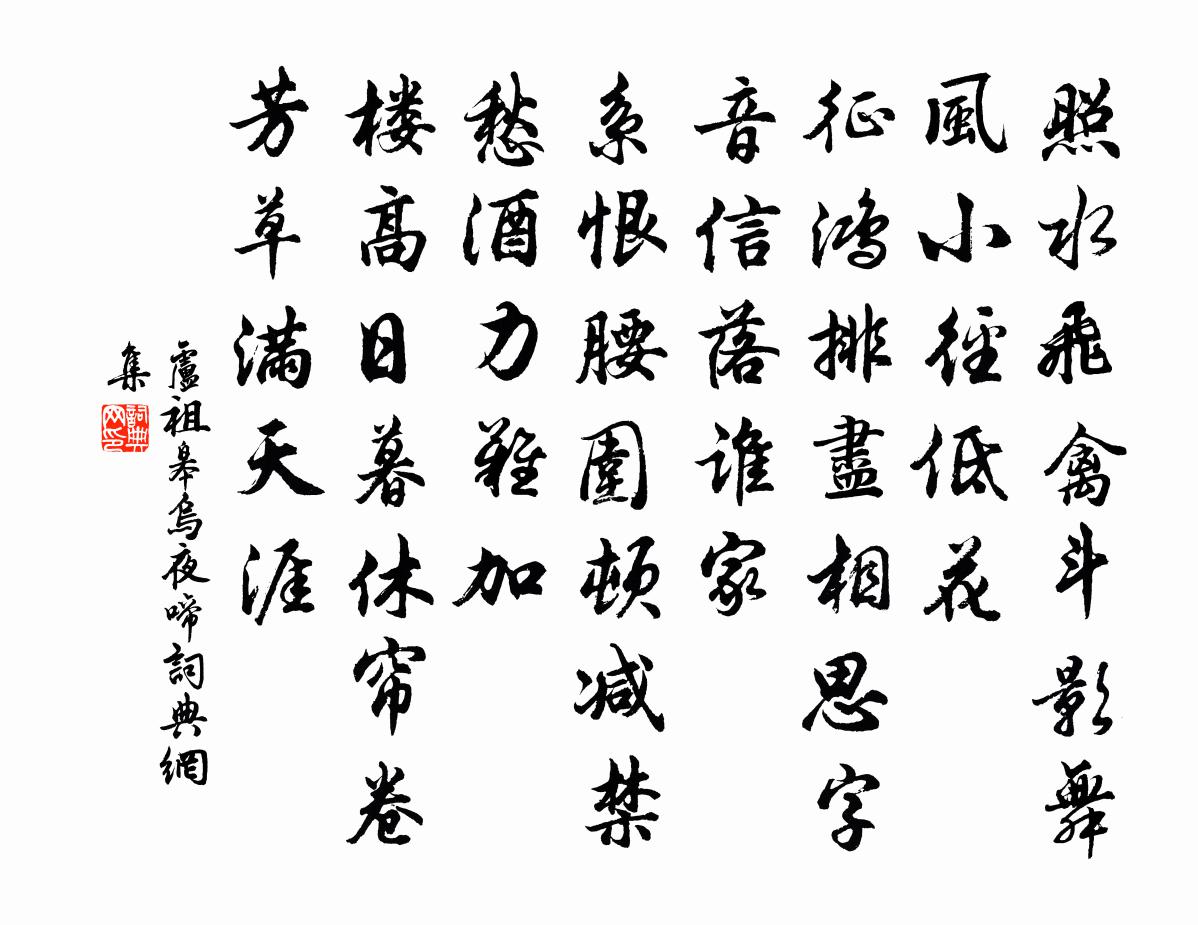 照水飛禽斗影舞
風小徑低花
征鴻排盡相思字
音信落誰家
系恨腰圍頓減禁
愁酒力難加
楼高日暮休帘卷
芳草滿天涯
盧祖皋烏夜啼詞典網
集
詞典
网印